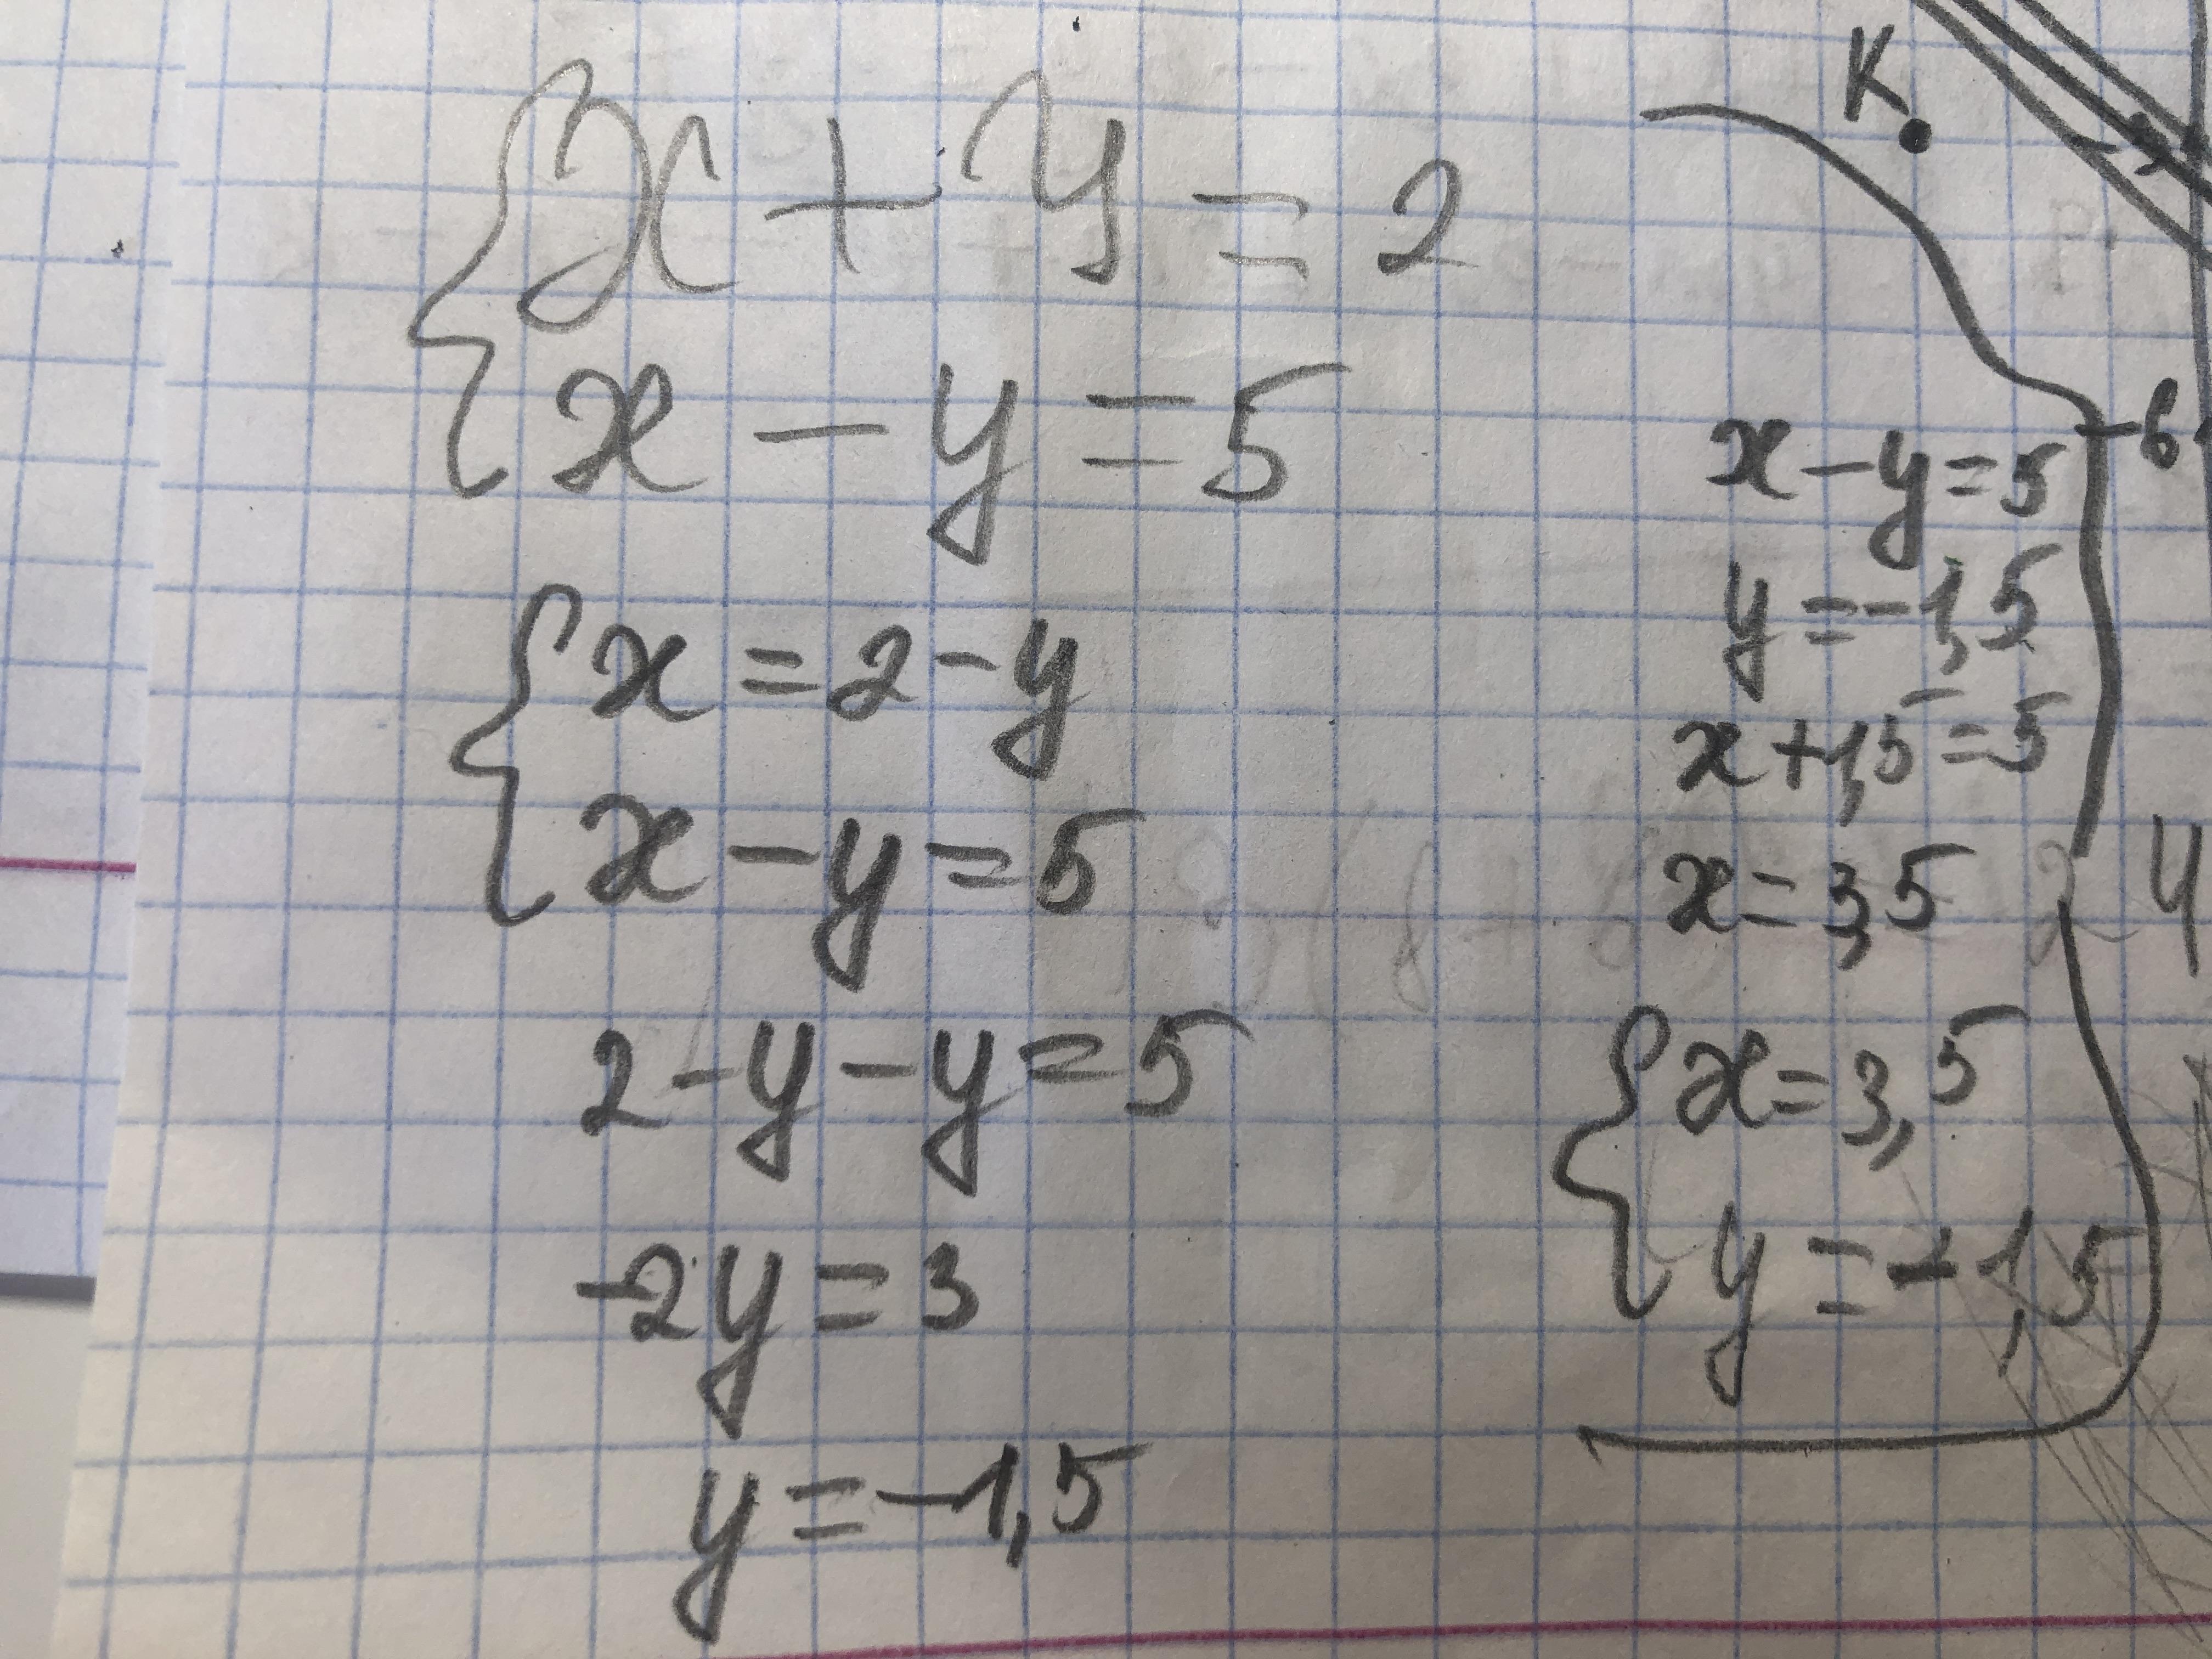 {x + y = 2
x - y = 5
{x = 2 - y
x - y = 5
2 - y - y = 5
-2y = 3
y = -1,5
K
-6
x - y = 5
y = -1,5
x + 1,5 = 5
x = 3,5
{x = 3,5
y = -1,5